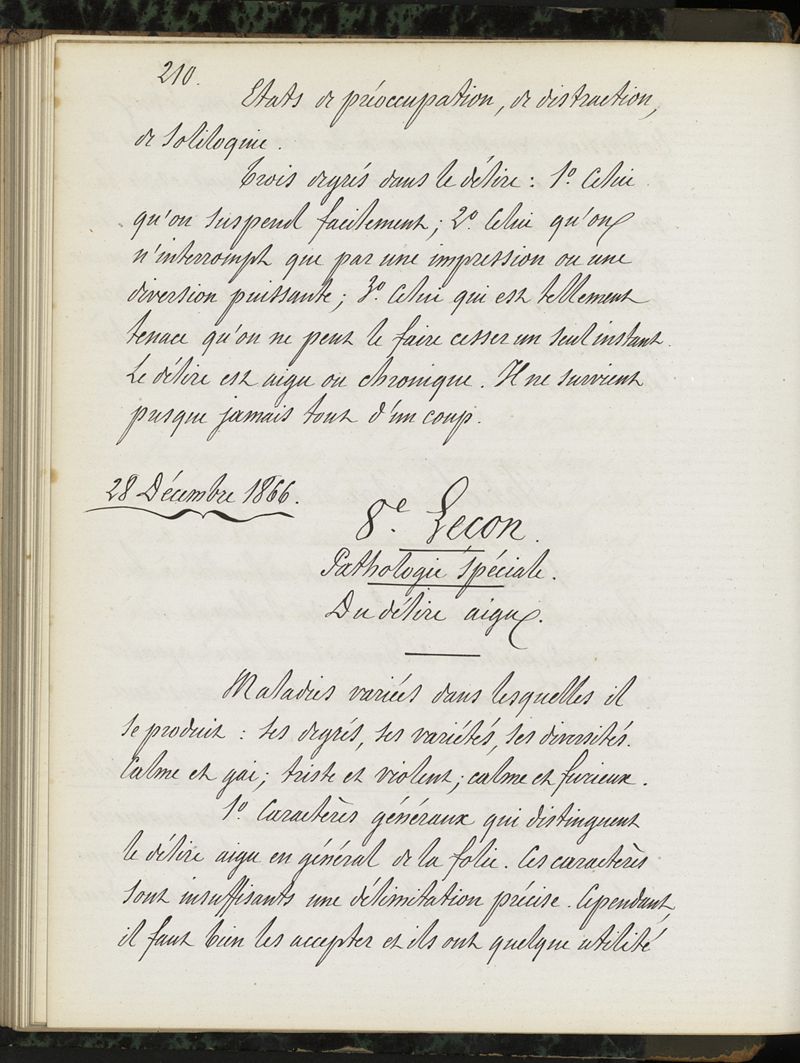 210.
Etats de préoccupation, de distraction,
de soliloquie.
Trois degrés dans le délire : 1º Celui
qu'on suspend facilement ; 2º. Celui qu'on
n'interrompt que par une impression ou une
diversion puissante ; 3º. Celui qui est tellement
tenace qu'on ne peut le faire cesser un seul instant.
Le délire est aigu ou chronique. Il ne survient
presque jamais tout d'un coup.
28 Décembre 1866.
8e. Leçon.
Pathologie spéciale.
Du délire aigu.
Maladies variées dans lesquelles il
se produit : ses degrés, ses variétés, ses diversités.
Calme et gai ; triste et violent ; calme et furieux.
1º Caractères généraux qui distinguent
le délire aigu en général de la folie. Ces caractères
sont insuffisants une délimitation précise. Cependant,
il faut bien les accepter et ils ont quelque utilité